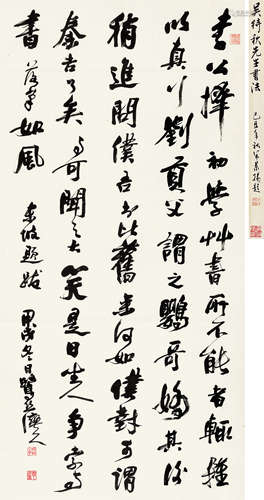 吴待秋先生書法
己丑年秋
題
李公擇初學艸書所不能者輒雜
以真行劉貢父謂之鸚哥嬌其後
稍進問僕吾書比舊來何如僕對可謂
秦吉了矣与可聞之大笑是日坐人争索
書落筆如風 東坡題跋 甲戌冬日鷺絲灣人